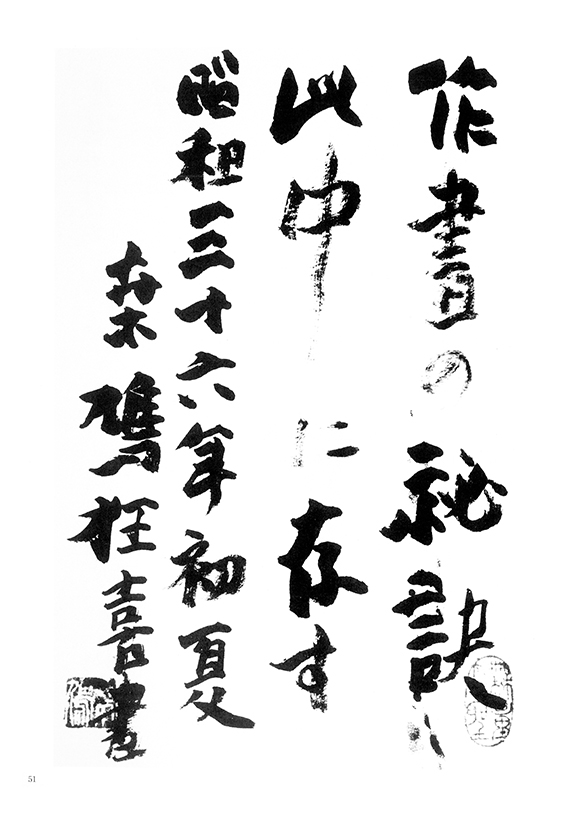 作書の祕訣ハ
此中に存す
昭和三十六年初夏
桑鳩狂喜書
51